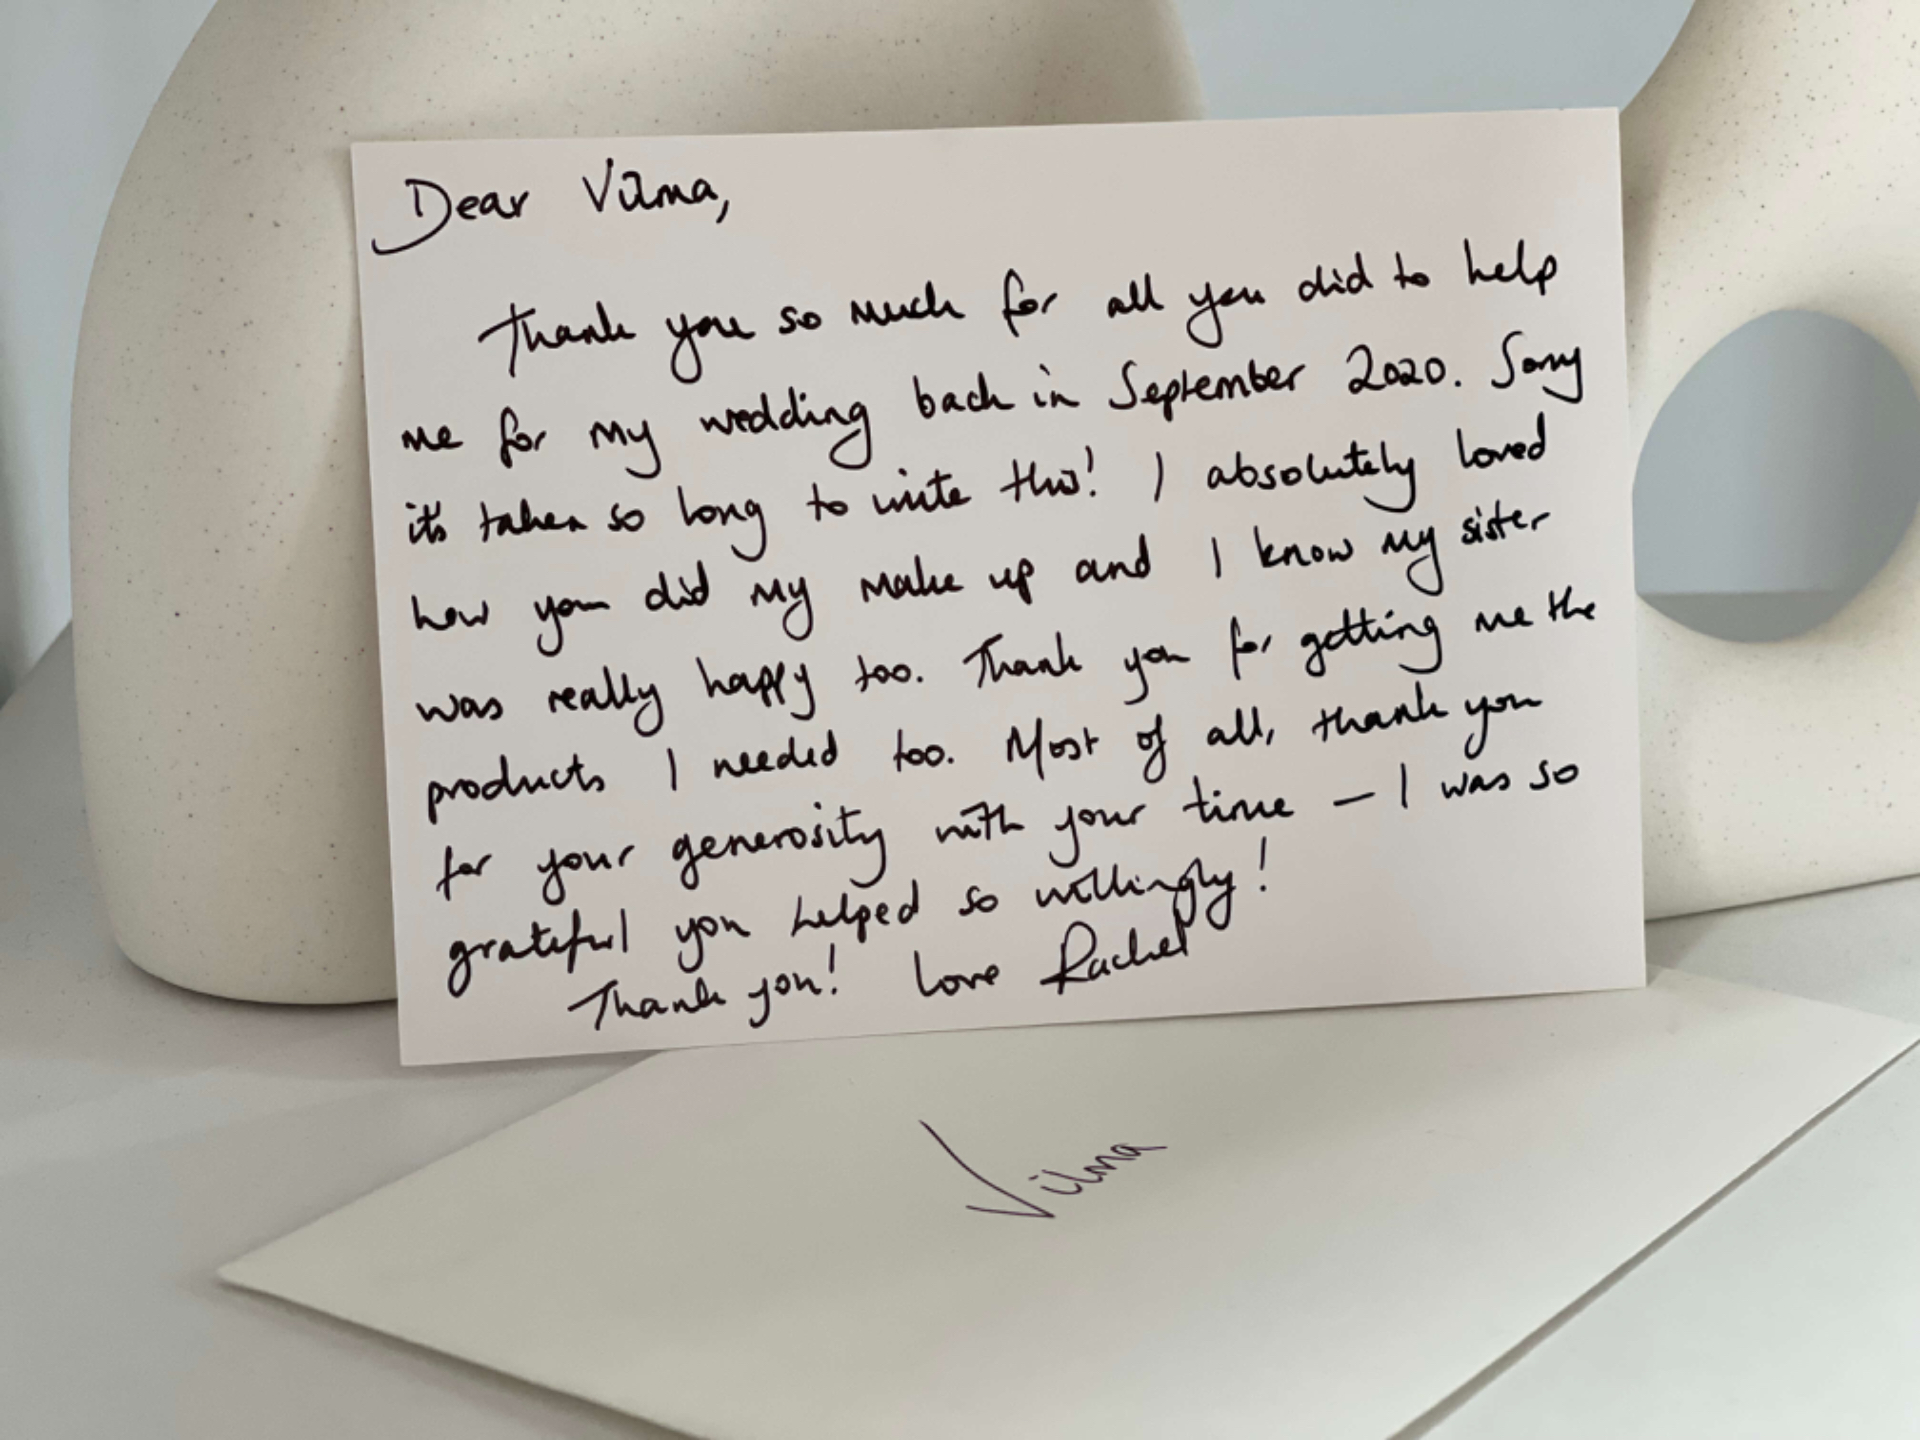 Dear Vilma,
Thank you so much for all you did to help
me for my wedding back in September 2020. Sorry
it's taken so long to write this! I absolutely loved
how you did my make up and I know my sister
was really happy too. Thank you for getting me the
products I needed too. Most of all, thank you
for your generosity with your time – I was so
grateful you helped so willingly!
Thank you! Love Rachel
Vilma